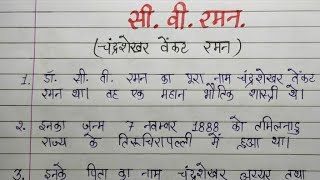 सी. वी. रमन.
(चंद्रशेखर वेंकट रमन)
1. डॉ. सी. वी. रमन का पूरा नाम चंद्रशेखर वेंकट
रमन था। वह एक महान भौतिक शास्त्री थे।
2. इनका जन्म 7 नवम्बर 1888 को तमिलनाडु
राज्य के तिरूचिरापल्ली में हुआ था।
3. इनके पिता का नाम चंद्रशेखर अय्यर तथा